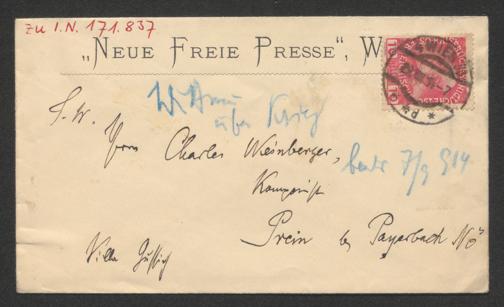 zu I.N. 171.837
„NEUE FREIE PRESSE“, W
WIEN
über Krieg
S. W.
Herrn Charles Weinberger,
Komponist
7/9 914
Prein bei Payerbach NÖ
Villa